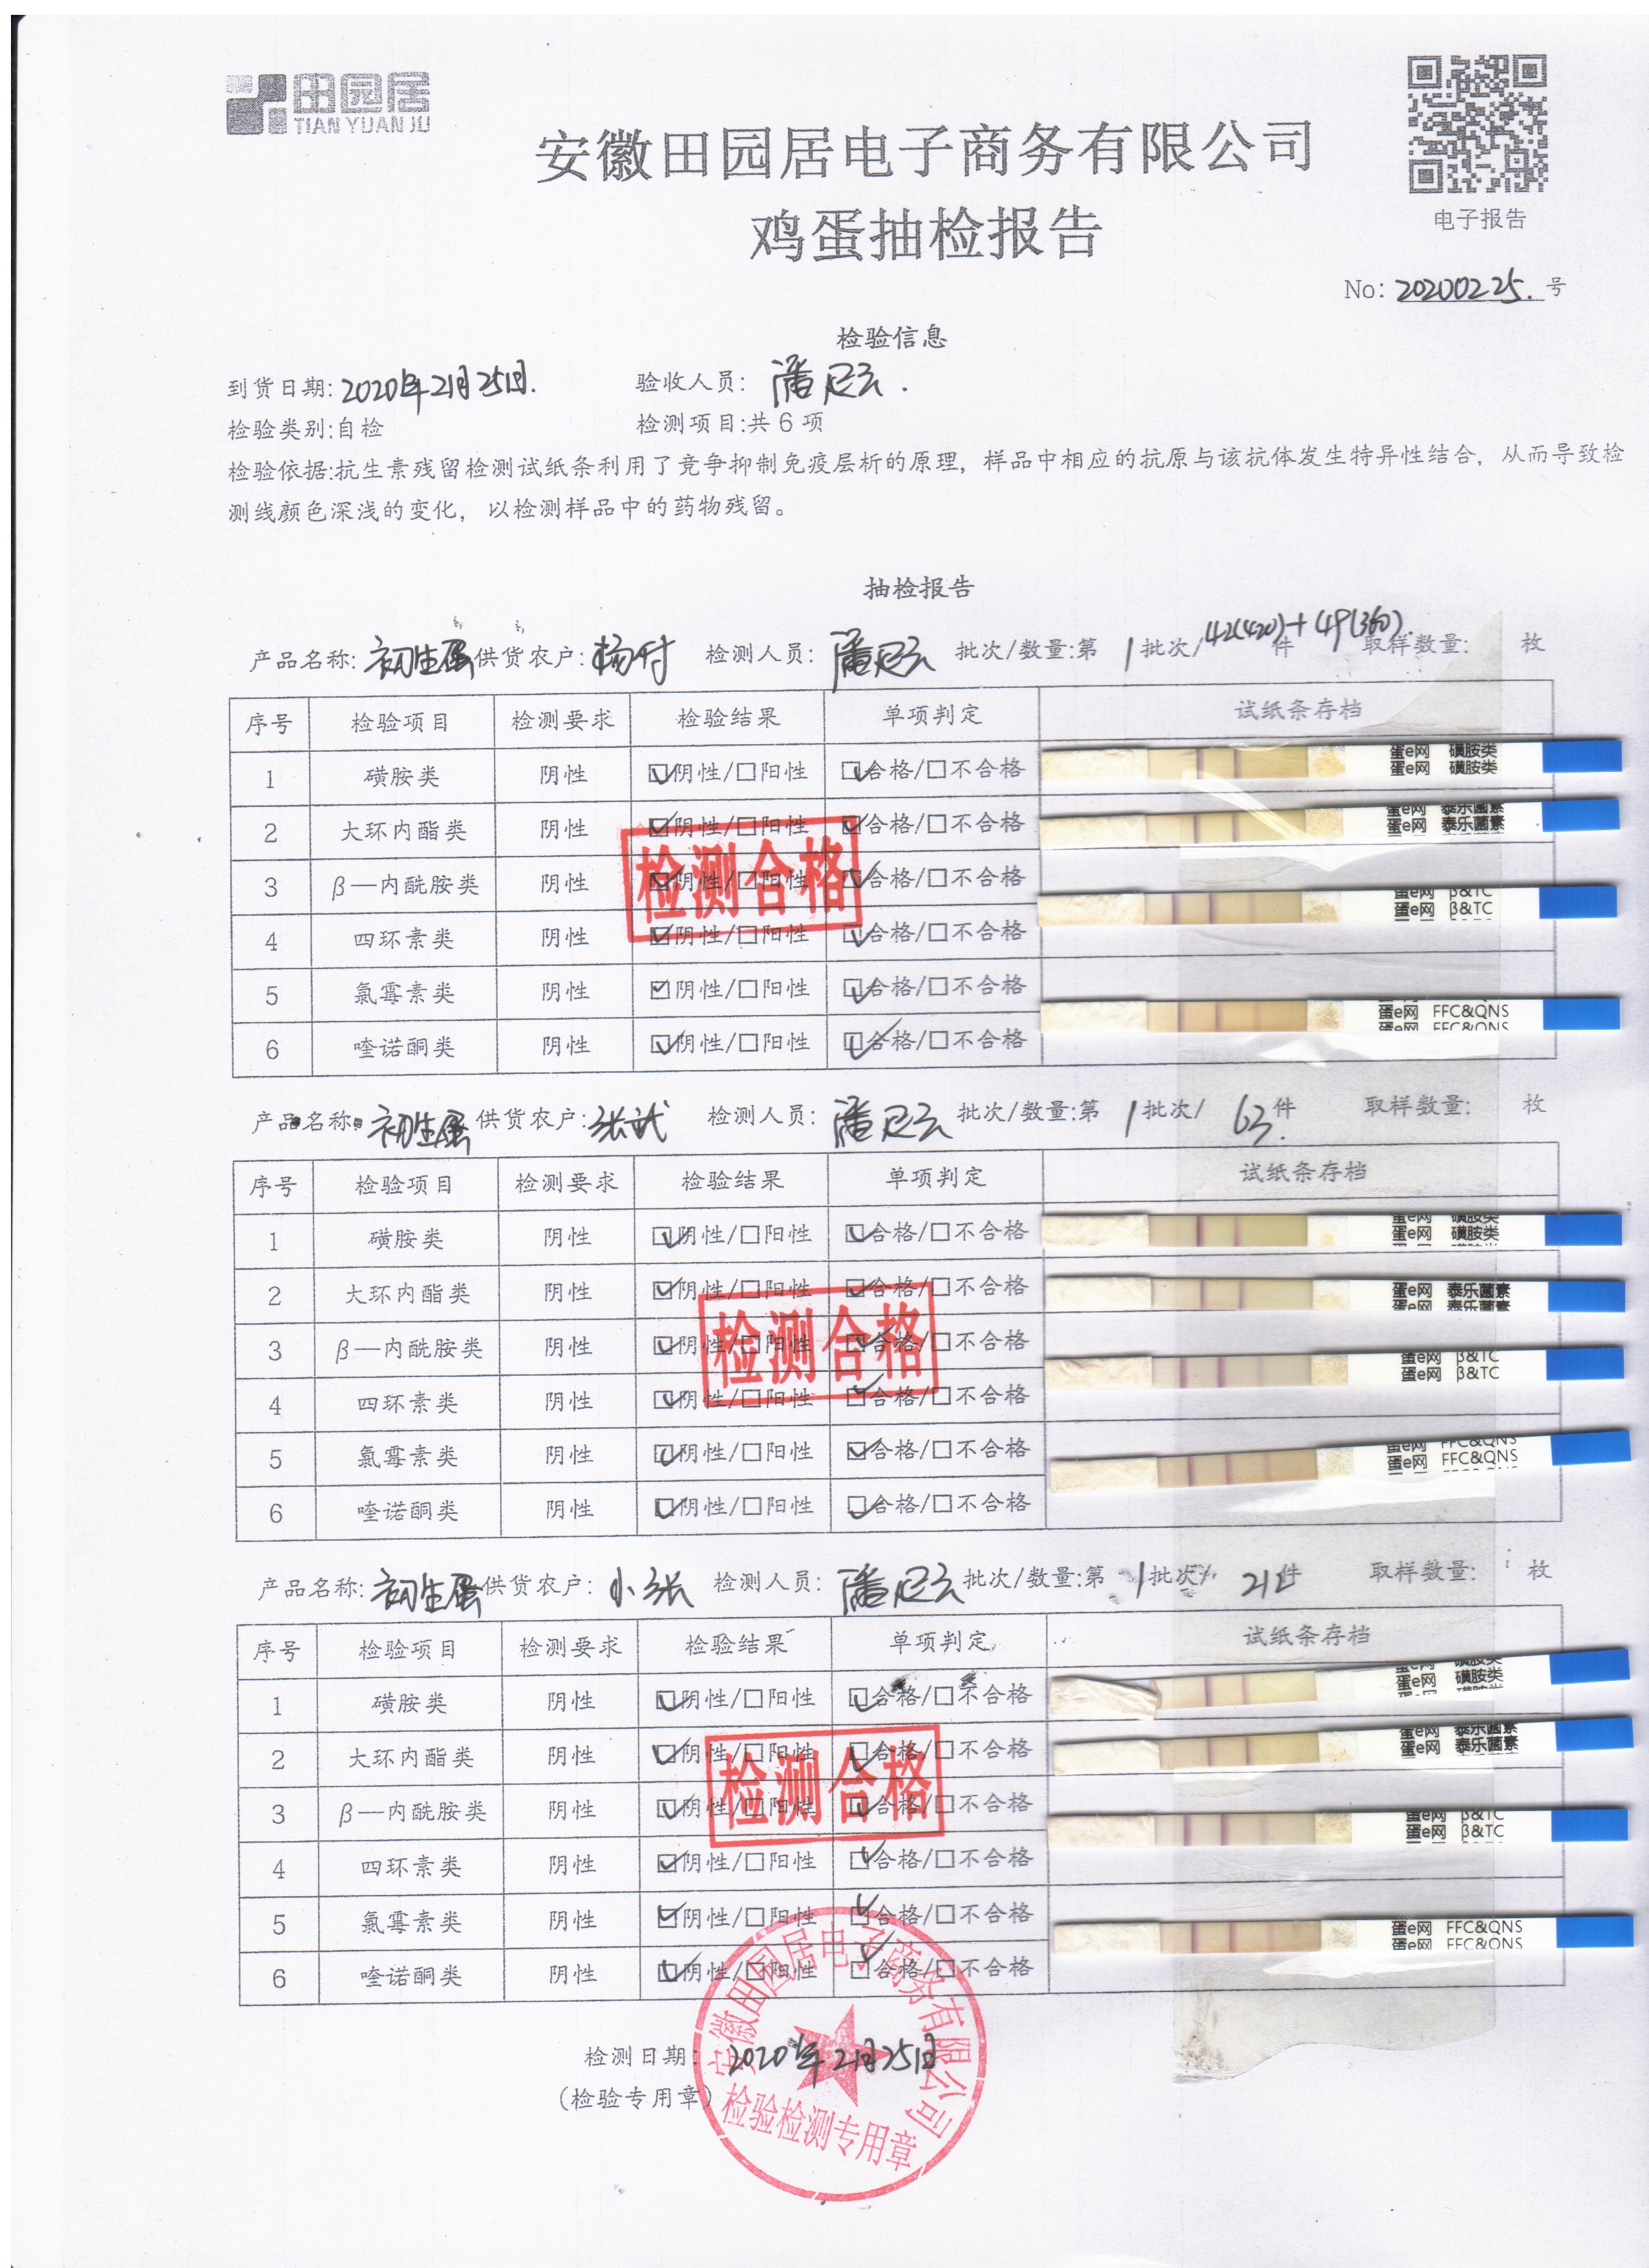 田园居
TIAN YUAN JU
安徽田园居电子商务有限公司
鸡蛋抽检报告
电子报告
No: 20200225. 号
检验信息
到货日期:2020年2月25日. 验收人员: 潘
检验类别:自检 检测项目:共6项
检验依据:抗生素残留检测试纸条利用了竞争抑制免疫层析的原理，样品中相应的抗原与该抗体发生特异性结合，从而导致检
测线颜色深浅的变化，以检测样品中的药物残留。
抽检报告
产品名称: 初生蛋 供货农户: 杨付 检测人员: 潘 批次/数量:第 1 批次/ 42(420)+49(360). 件 取样数量: 枚
序号 检验项目 检测要求 检验结果 单项判定 试纸条存档
1 磺胺类 阴性 ☑阴性/□阳性 ☑合格/□不合格 蛋e网 磺胺类
蛋e网 磺胺类
2 大环内酯类 阴性 ☑阴性/□阳性 ☑合格/□不合格 蛋e网 泰乐菌素
蛋e网 泰乐菌素
3 β—内酰胺类 阴性 ☑阴性/□阳性 ☑合格/□不合格 蛋e网 β&TC
蛋e网 β&TC
4 四环素类 阴性 ☑阴性/□阳性 ☑合格/□不合格
5 氯霉素类 阴性 ☑阴性/□阳性 ☑合格/□不合格 蛋e网 FFC&QNS
蛋e网 FFC&QNS
6 喹诺酮类 阴性 ☑阴性/□阳性 ☑合格/□不合格
检测合格
产品名称: 初生蛋 供货农户: 张武 检测人员: 潘 批次/数量:第 1 批次/ 63. 件 取样数量: 枚
序号 检验项目 检测要求 检验结果 单项判定 试纸条存档
1 磺胺类 阴性 ☑阴性/□阳性 ☑合格/□不合格 蛋e网 磺胺类
蛋e网 磺胺类
磺胺类
2 大环内酯类 阴性 ☑阴性/□阳性 ☑合格/□不合格 蛋e网 泰乐菌素
蛋e网 泰乐菌素
3 β—内酰胺类 阴性 ☑阴性/□阳性 ☑合格/□不合格 蛋e网 β&TC
蛋e网 β&TC
4 四环素类 阴性 ☑阴性/□阳性 ☑合格/□不合格
5 氯霉素类 阴性 ☑阴性/□阳性 ☑合格/□不合格 蛋e网 FFC&QNS
蛋e网 FFC&QNS
6 喹诺酮类 阴性 ☑阴性/□阳性 ☑合格/□不合格
检测合格
产品名称: 初生蛋 供货农户: 小张 检测人员: 潘 批次/数量:第 1 批次/ 21 件 取样数量: 枚
序号 检验项目 检测要求 检验结果 单项判定 试纸条存档
1 磺胺类 阴性 ☑阴性/□阳性 ☑合格/□不合格 蛋e网 磺胺类
蛋e网 磺胺类
磺胺类
2 大环内酯类 阴性 ☑阴性/□阳性 ☑合格/□不合格 蛋e网 泰乐菌素
蛋e网 泰乐菌素
3 β—内酰胺类 阴性 ☑阴性/□阳性 ☑合格/□不合格 蛋e网 β&TC
蛋e网 β&TC
4 四环素类 阴性 ☑阴性/□阳性 ☑合格/□不合格
5 氯霉素类 阴性 ☑阴性/□阳性 ☑合格/□不合格 蛋e网 FFC&QNS
蛋e网 FFC&QNS
6 喹诺酮类 阴性 ☑阴性/□阳性 ☑合格/□不合格
检测合格
安徽田园居电子商务有限公司
检测日期: 2020年2月25日
(检验专用章)
检验检测专用章